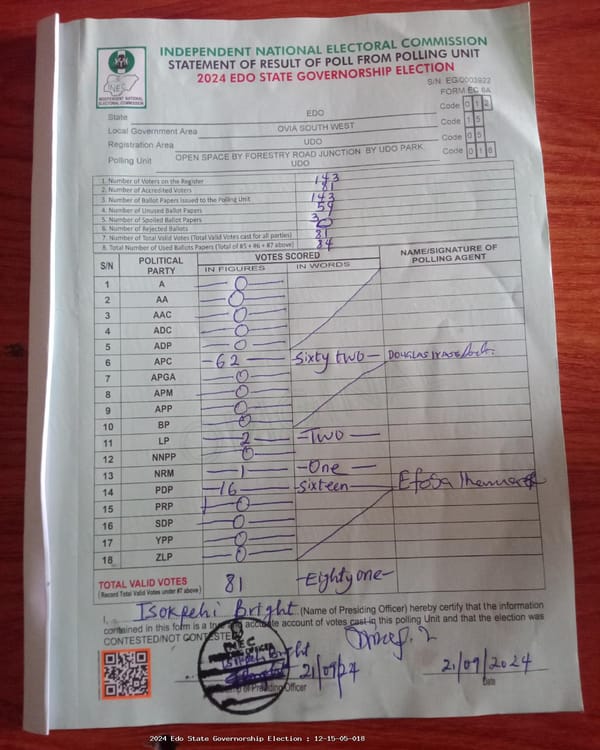 INDEPENDENT NATIONAL ELECTORAL COMMISSION
STATEMENT OF RESULT OF POLL FROM POLLING UNIT
2024 EDO STATE GOVERNORSHIP ELECTION
INEC
INDEPENDENT NATIONAL ELECTORAL COMMISSION
S/N EG/0003922
FORM EC 8A
State EDO Code 0 1 2
Local Government Area OVIA SOUTH WEST Code 1 5
Registration Area UDO Code 0 5
Polling Unit OPEN SPACE BY FORESTRY ROAD JUNCTION BY UDO PARK, UDO Code 0 1 8
1. Number of Voters on the Register 143
2. Number of Accredited Voters 81
3. Number of Ballot Papers Issued to the Polling Unit 143
4. Number of Unused Ballot Papers 59
5. Number of Spoiled Ballot Papers 3
6. Number of Rejected Ballots 0
7. Number of Total Valid Votes (Total Valid Votes cast for all parties) 81
8. Total Number of Used Ballots Papers (Total of #5 + #6 + #7 above) 84
S/N POLITICAL PARTY VOTES SCORED NAME/SIGNATURE OF POLLING AGENT
IN FIGURES IN WORDS
1 A 0
2 AA 0
3 AAC 0
4 ADC 0
5 ADP 0
6 APC 62 Sixty two DOUGLAS
7 APGA 0
8 APM 0
9 APP 0
10 BP 0
11 LP 2 Two
12 NNPP 0
13 NRM 1 One
14 PDP 16 Sixteen Efosa
15 PRP 0
16 SDP 0
17 YPP 0
18 ZLP 0
TOTAL VALID VOTES 81 Eighty one
(Record Total Valid Votes under #7 above)
I, Isokpehi Bright (Name of Presiding Officer) hereby certify that the information
contained in this form is a true and accurate account of votes cast in this polling Unit and that the election was
CONTESTED/NOT CONTESTED
INEC
21/09/24 21/09/2024
Stamp of Presiding Officer Date
2024 Edo State Governorship Election : 12-15-05-018